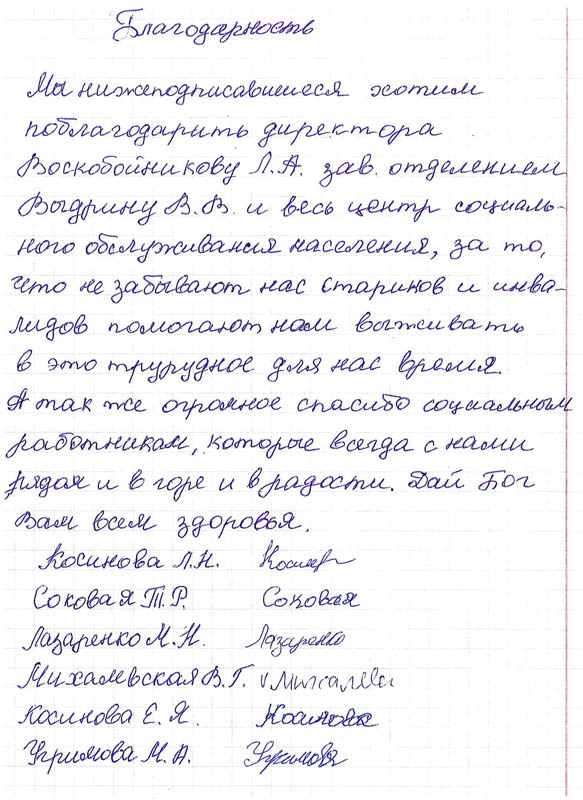 Благодарность
Мы нижеподписавшиеся хотим
поблагодарить директора
Воскобойникову Л.А. зав. отделением
Выдрину В.В. и весь центр социаль-
ного обслуживания населения, за то,
что не забывают нас стариков и инва-
лидов помогают нам выживать
в это трурудное для нас время.
А так же огромное спасибо социальным
работникам, которые всегда с нами
рядом и в горе и в радости. Дай Бог
Вам всем здоровья.
Косинова Л.Н.
Соковая Т.Р. Соковая
Лазаренко М.Н. Лазаренко
Михалевская В.Г.
Косинова Е.Я.
Угримова М.А. Угримова